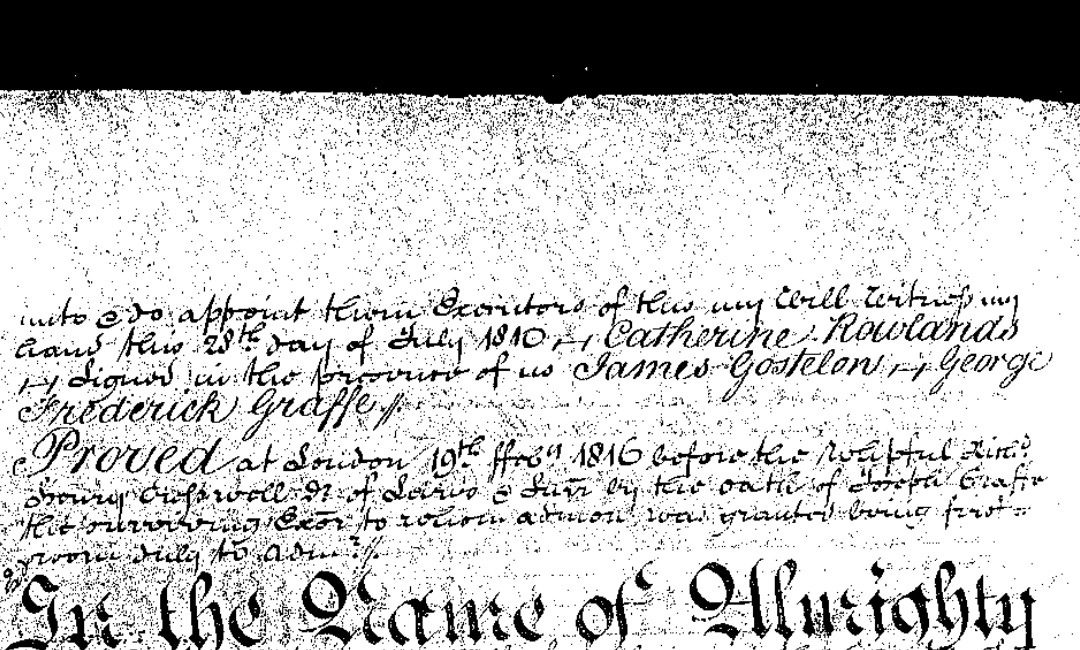 unto & do appoint them Executors of this my Will Witness my
hand this 28th day of July 1810 Catherine Rowlands
Signed in the presence of us James Gostelow George
Frederick Graffe
Proved at London 19th ffebry 1816 before the Worshipful Richd
Henry Cresswell Dr of Laws & Surr by the oath of Joseph Graffe
the surviving Exor to whom admon was granted being first
sworn duly to Admr
In the Name of Almighty